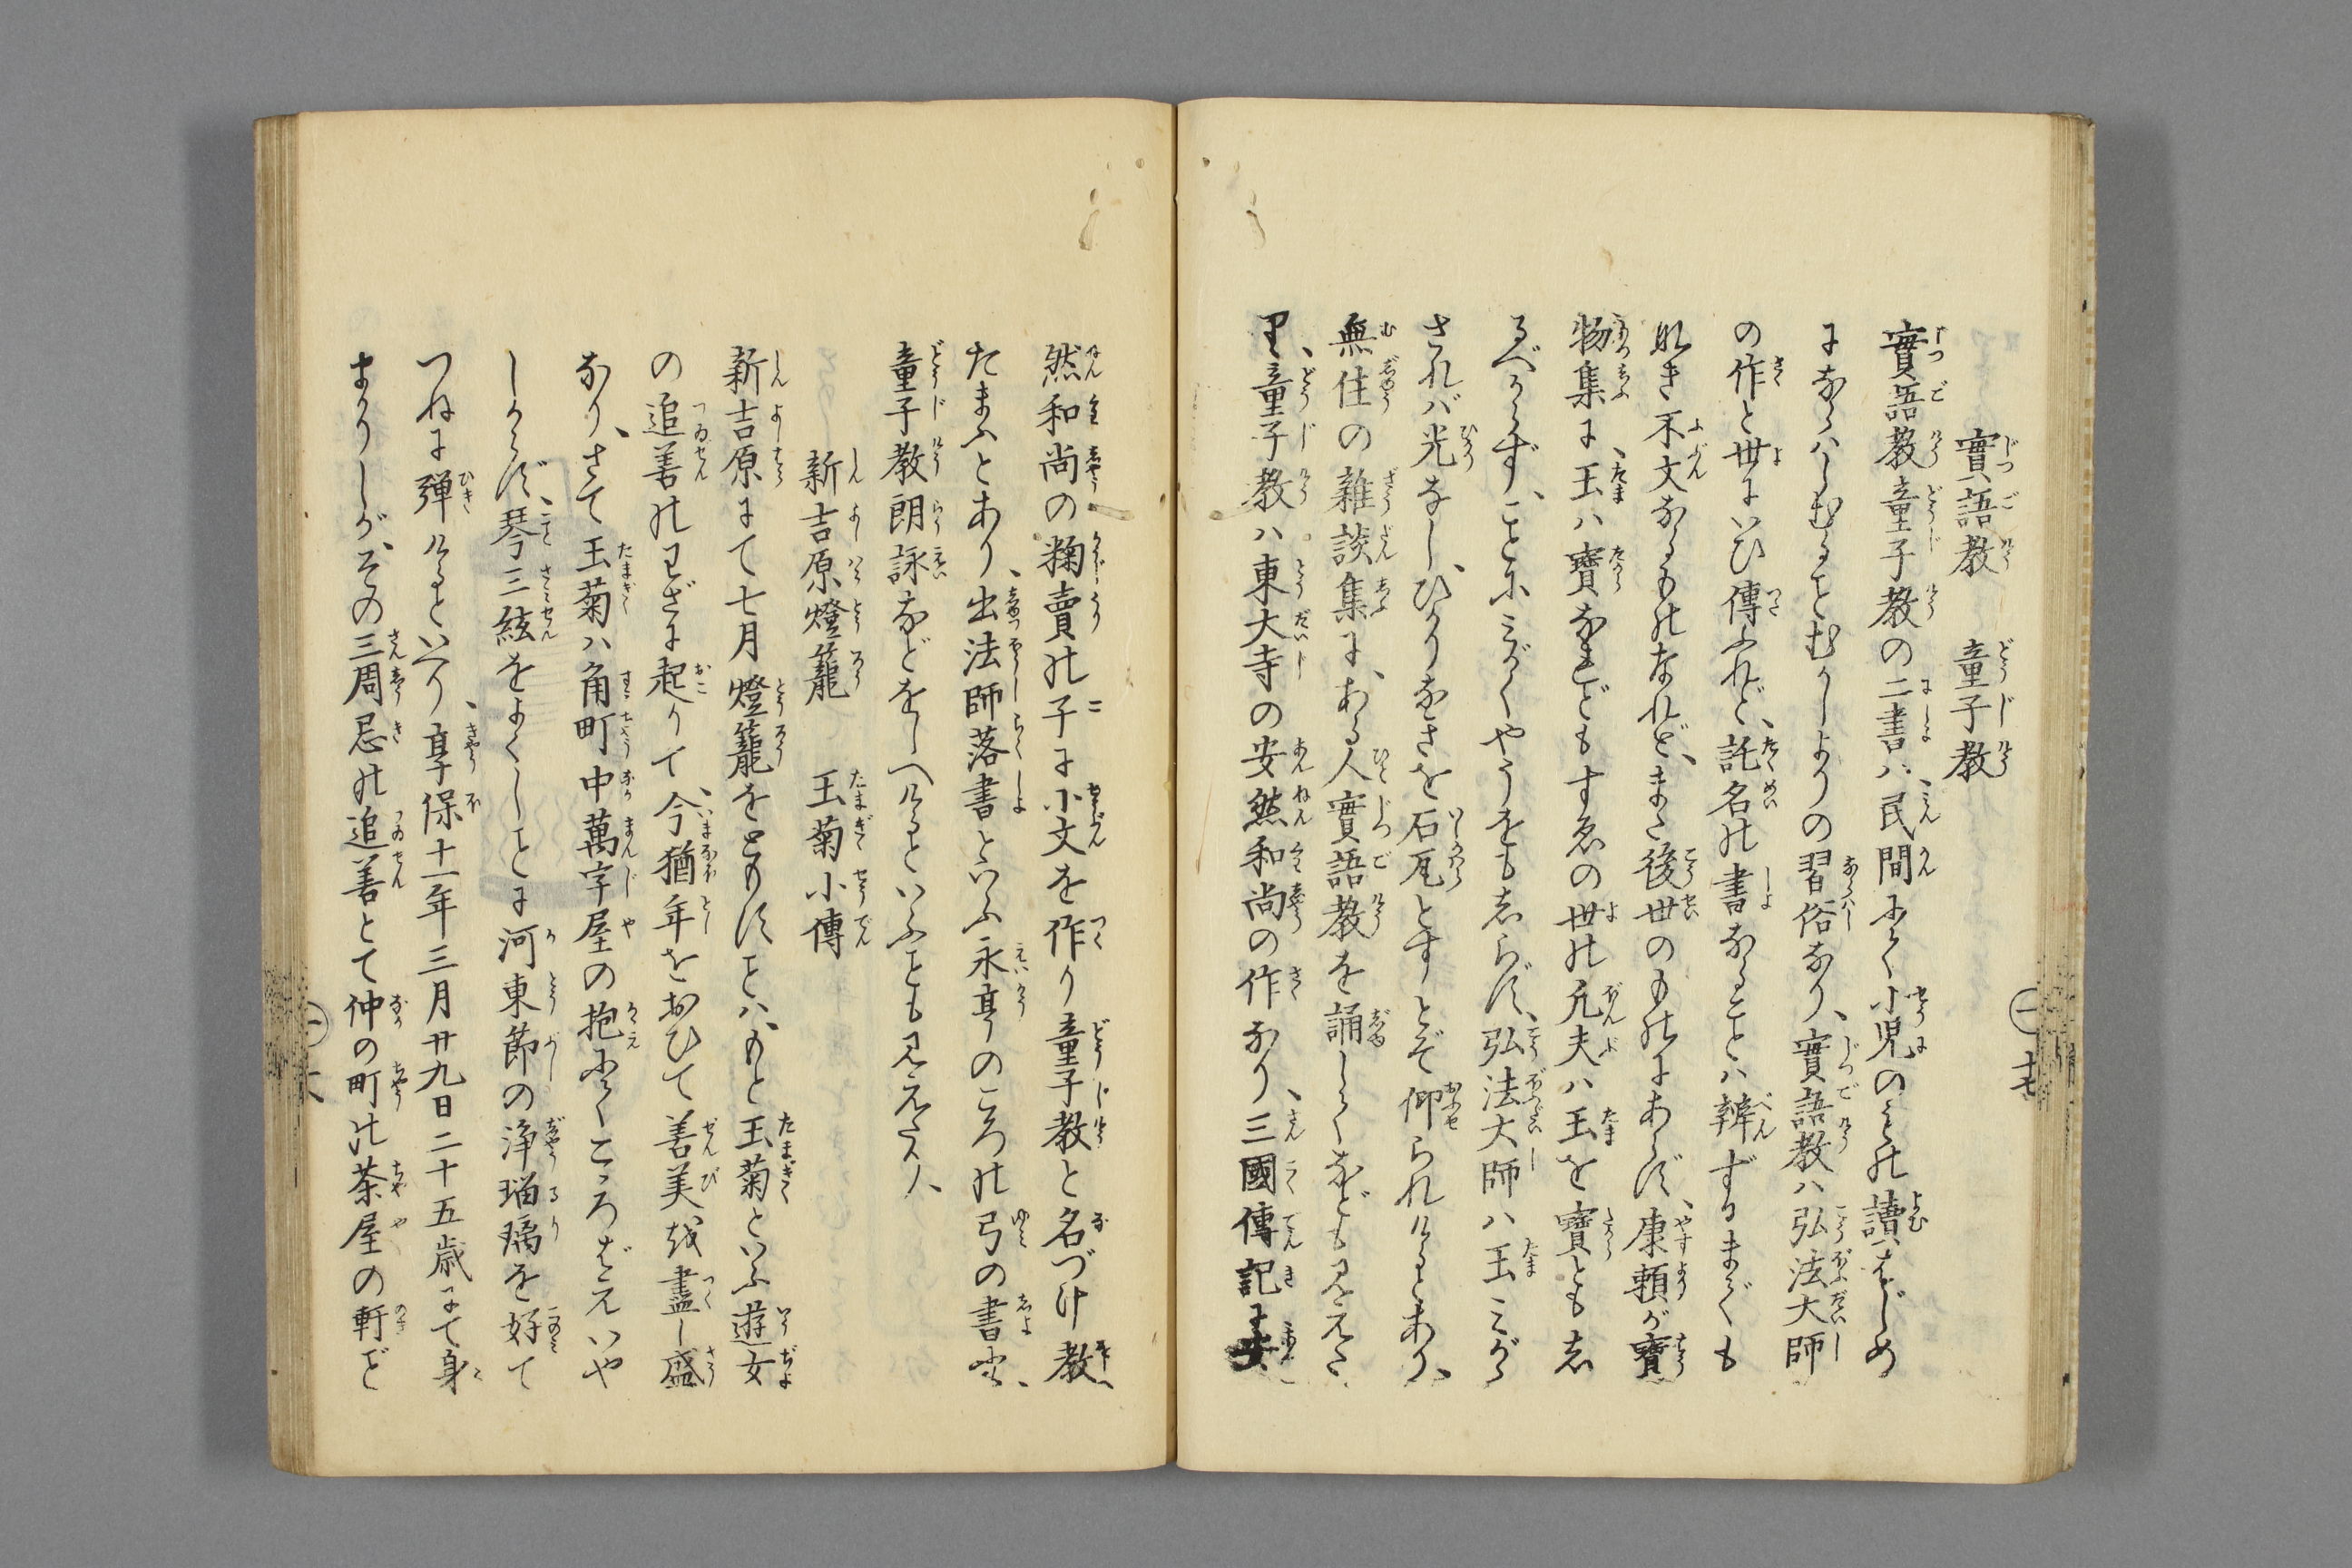 實語教　童子教
實語教童子教の二書ハ、民間にて小児のもの讀はじめ
にならハしむることむかしよりの習俗なり、實語教ハ弘法大師
の作と世にいひ傳ふれど、託名の書なることハ辨ずるまでも
なき不文なるものなれど、また後世のものにあらず、康頼が寶
物集に、玉ハ寶なれどもすゑの世の凡夫ハ玉を寶とも志
るべからず、ことにみがくやうをも志らず、弘法大師ハ玉みがゝ
されバ光なし、ひかりなきを石瓦とすとぞ仰られけるとあり、
無住の雜談集に、ある人實語教を誦してなども見えた
り、童子教ハ東大寺の安然和尚の作なり、三國傳記に安
然和尚の鞠賣の子に小文を作り童子教と名づけ教へ
たまふとあり、出法師落書といふ永享のころの弓の書に、
童子教朗詠などをしへけるといふことも見えたり、
新吉原燈籠　玉菊小傳
新吉原にて七月燈籠をともすことハ、もと玉菊といふ遊女
の追善のわざに起りて、今猶年をおひて善美を盡し盛
なり、さて玉菊ハ角町中萬字屋の抱にてこゝろばえいや
しからず、琴三絃をよくしことに河東節の浄瑠璃を好て
つねに弾けるといへり、享保十一年三月廿九日二十五歳にて身
まかりしが、その三周忌の追善とて仲の町の茶屋の軒ど
㊀十七